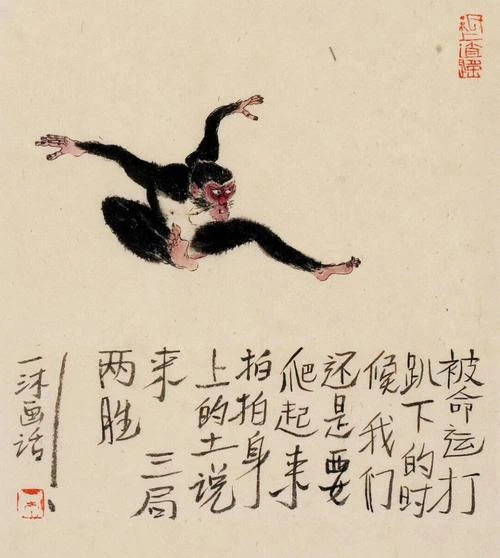 被命运打
趴下的时
候我们
还是要
爬起来
拍拍身
上的土说
来 三局
两胜
一沐画话